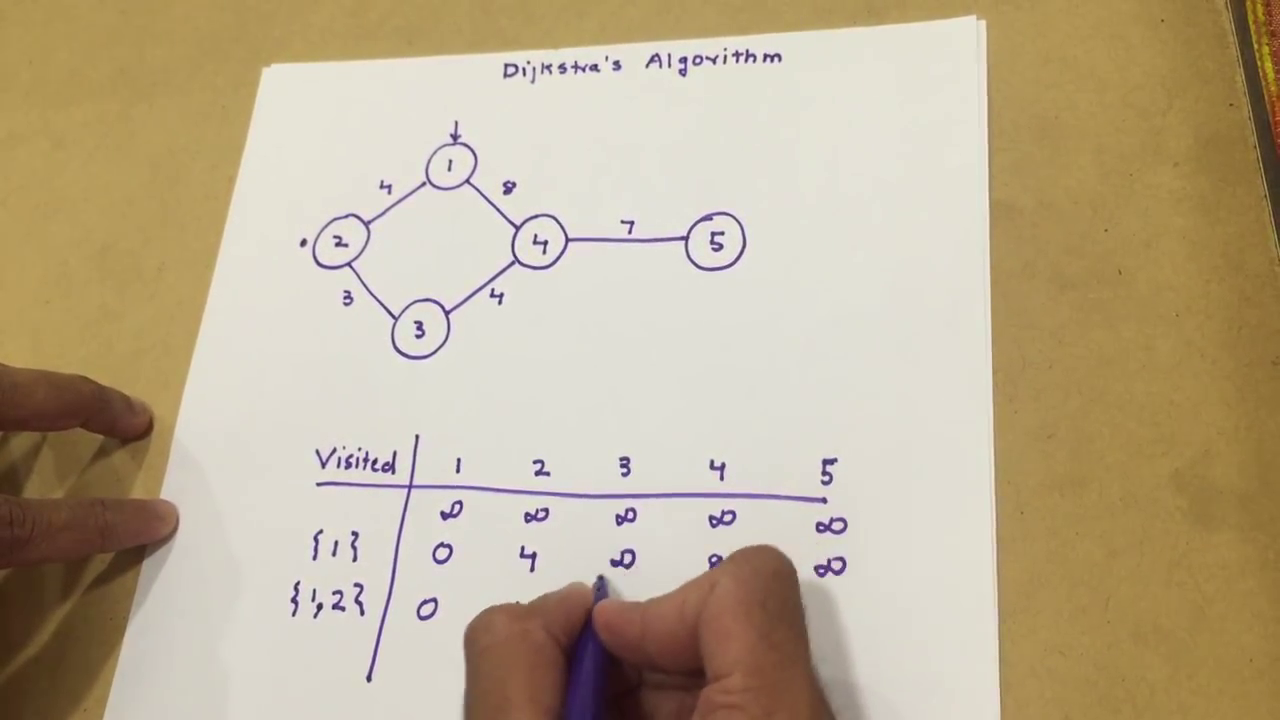 Dijkstra's Algorithm
1
4 8
2 4 7 5
3 4
3
Visited 1 2 3 4 5
∞ ∞ ∞ ∞ ∞
{1} 0 4 ∞ ∞
{1,2} 0